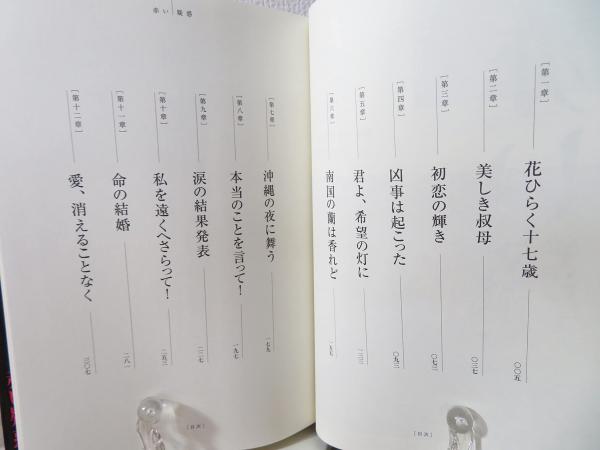 [第一章]
花ひらく十七歳
〇〇五
[第二章]
美しき叔母
〇三七
[第三章]
初恋の輝き
〇七三
[第四章]
凶事は起こった
〇九三
[第五章]
君よ、希望の灯に
[第六章]
南国の蘭は香れど
[目次]
赤い疑惑
[第七章]
沖縄の夜に舞う
一七九
[第八章]
本当のことを言って!
一九七
[第九章]
涙の結果発表
二二七
[第十章]
私を遠くへさらって!
二五三
[第十一章]
命の結婚
二八一
[第十二章]
愛、消えることなく
三〇七
[目次]